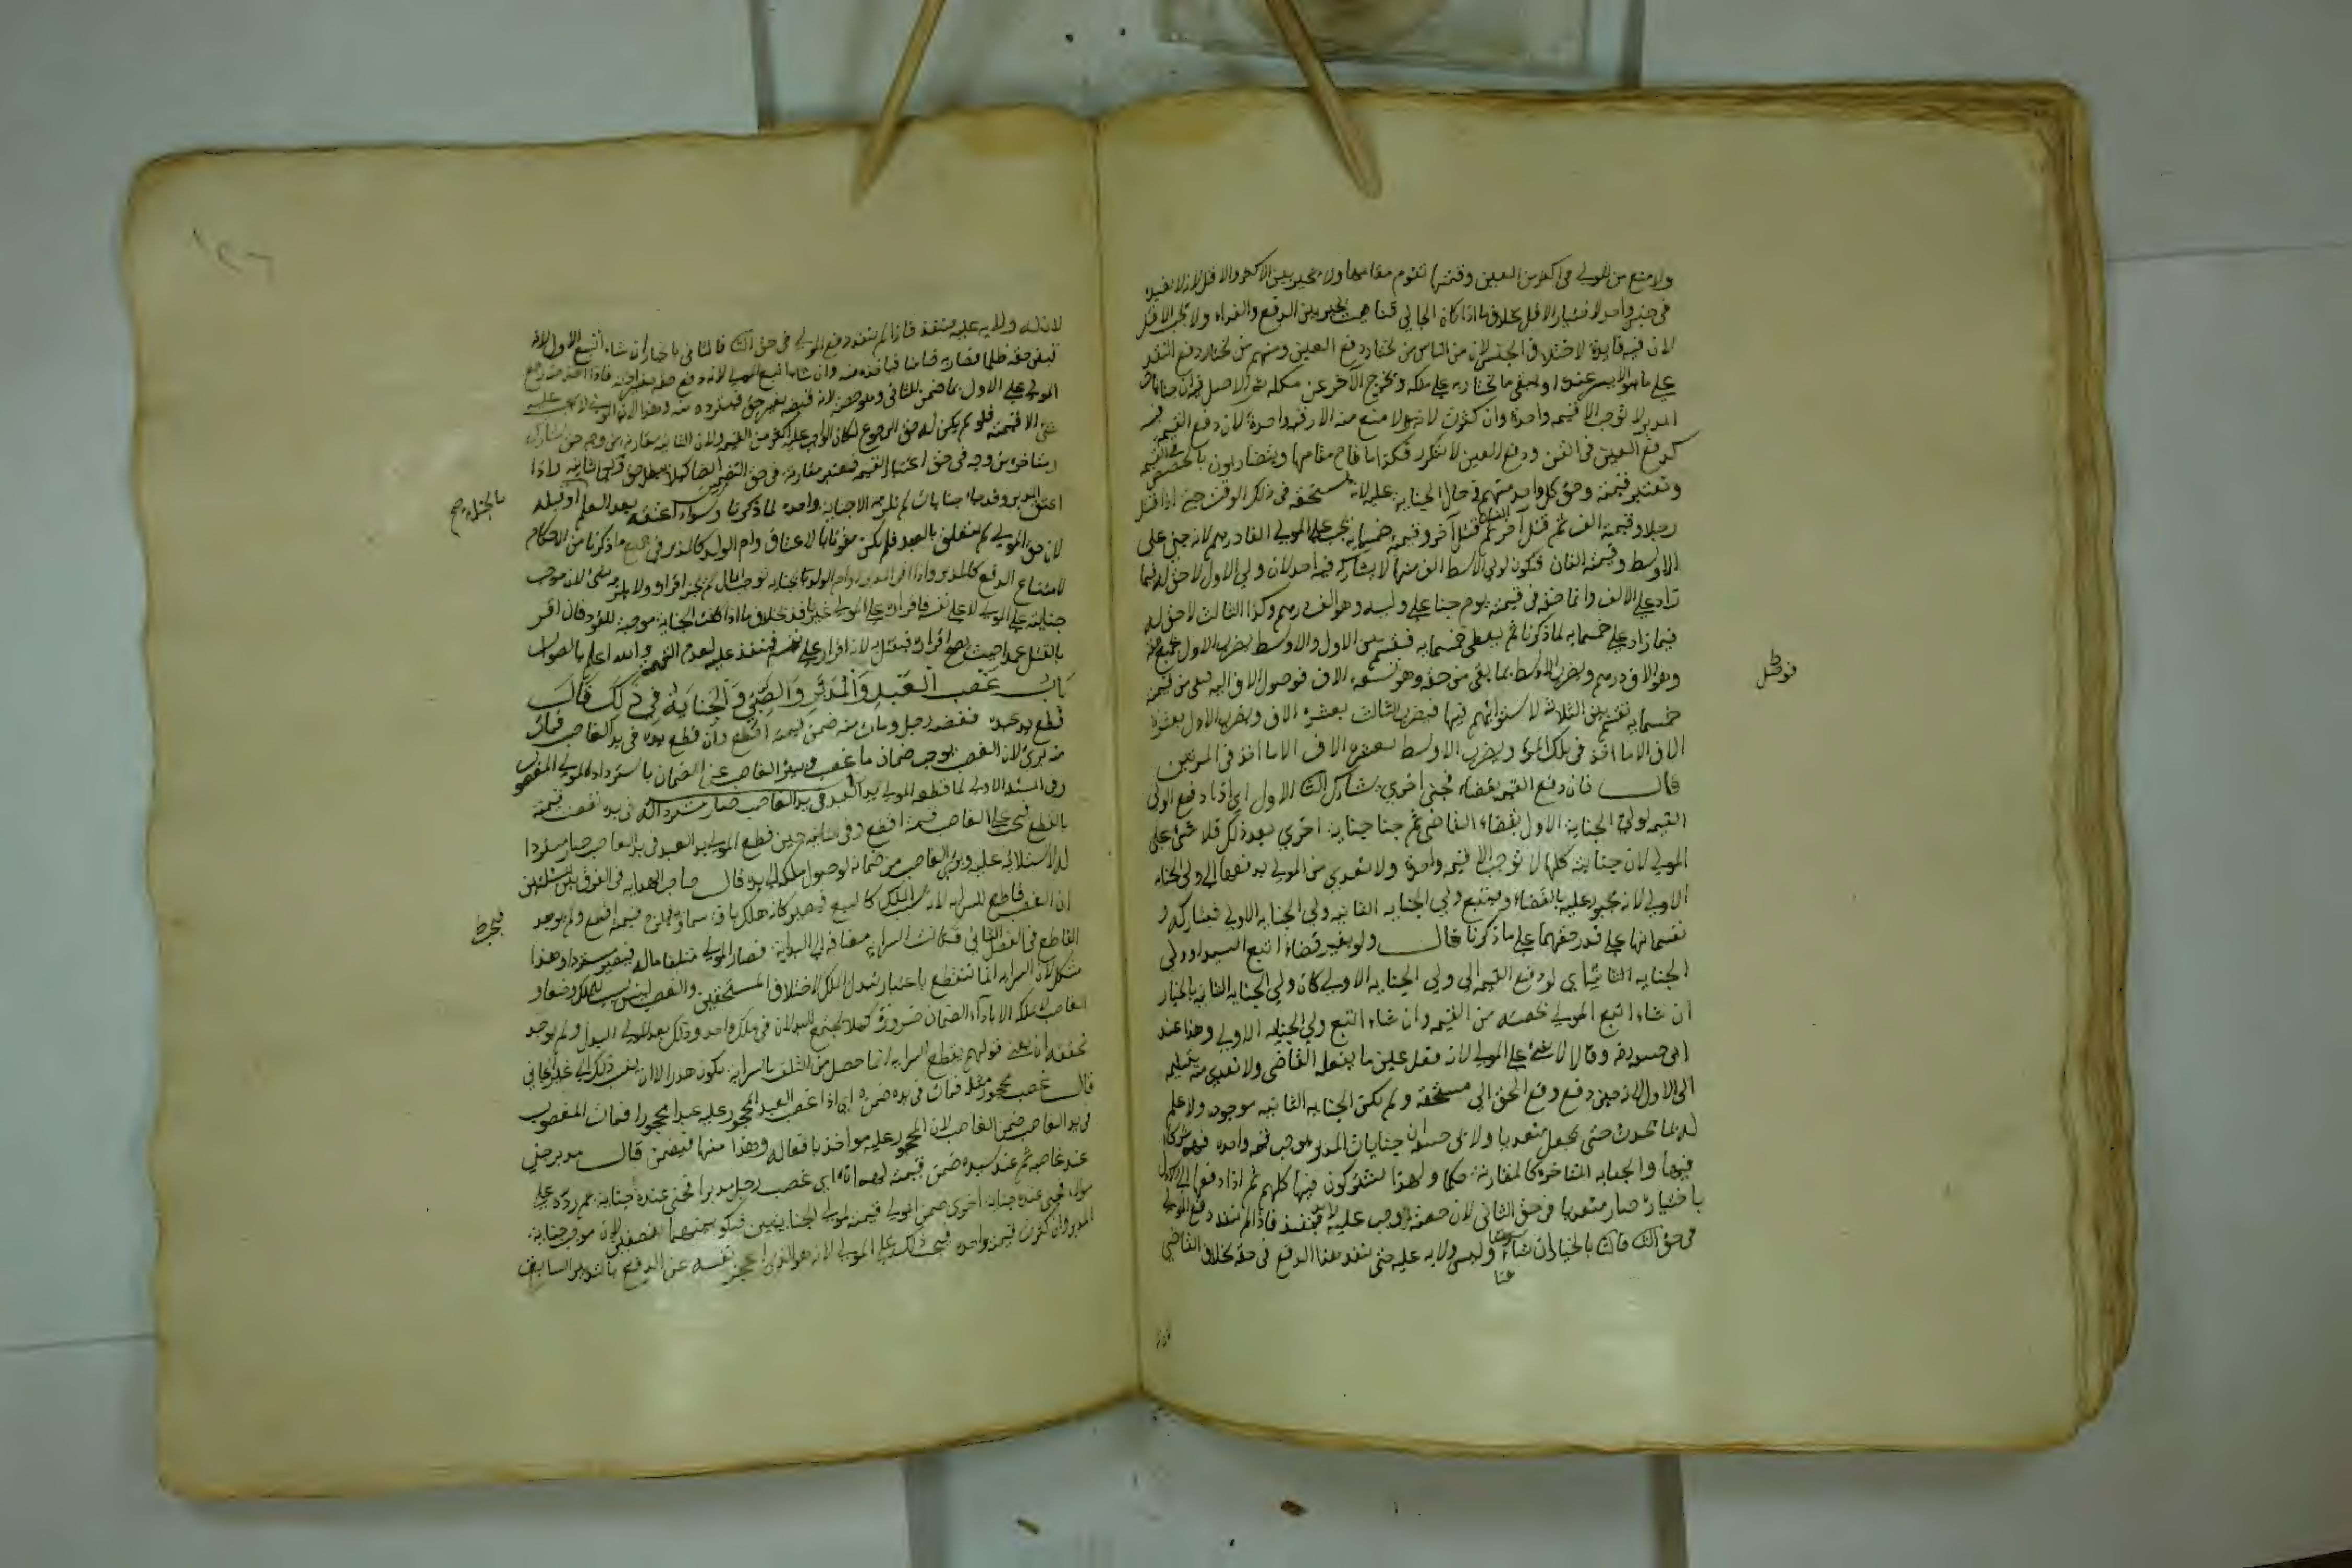 ولا منع من المولى في اكثر من العين وقيمتها تقوم مقامها ولا تخير بين الاكثر والاقل لانه لا يفيد
في جنس واحد لاختيار الاقل بخلاف ما اذا كان الجاني قنا حيث يخير بين الدفع والفداء ولا يجب الاقل
لان فيه فايدة لاختلاف الجنس لان من الناس من يختار دفع العين ومنهم من يختار دفع النقد
على ما هو الايسر عنده او يبقى ما يختاره على ملكه ويخرج الآخر عن ملكه ثم الاصل فيه ان جنايات
المدبر لا توجب الا قيمة واحدة وان كثرت لانه لا منع منه الا رقبة واحدة لان دفع القيمة فيه
كدفع العين في القن ودفع العين لا يتكرر فكذا ما قام مقامها ويتضاربون بالحصص في القيمة
وتعتبر قيمته في حق كل واحد منهم في حال الجناية عليه لانه يستحقه في ذلك الوقت حتى اذا قتل
رجلا وقيمته الف ثم قتل آخر وقيمته الفان ثم قتل آخر وقيمته خمسمايه يجب على المولى الفا درهم لانه جنى على
الاوسط وقيمته الفان فيكون لولي الاوسط الف منها لا يشاركه فيه احد لان ولي الاول لا حق له فيما
زاد على الالف وانما حقه في قيمته يوم جنا على وليه وهو الف درهم وكذا الثالث لا حق له
فيما زاد على خمسمايه لما ذكرنا ثم يعطى خمسمايه فتقسم بين الاول والاوسط يضرب الاول بجميع حقه
وهو الاف درهم ويضرب الاوسط بما بقي من حقه وهو تسعة الاف فوصول الاف اليه فبقي من قيمته
خمسمايه تقسم بين الثلاثة لاستوائهم فيها فيضرب الثالث بعشرة الاف ويضرب الاول بعشرة
الاف الا ما اخذ في تلك المرة ويضرب الاوسط بعشرة الاف الا ما اخذ في المرتين
قال فان دفع القيمة بقضاء فجنى اخرى يشارك الثاني الاول اي اذا دفع المولى
القيمة لولي الجناية الاول بقضاء القاضي ثم جنا جناية اخرى بعد ذلك فلا شيء على
المولى لان جناياته كلها لا توجب الا قيمة واحدة ولا تعدي من المولى بدفعها الى ولي الجناية
الاولى لانه مجبور عليه بالقضاء ويتبع ولي الجناية الثانيه ولي الجناية الاولى فيشاركه و
يقسمانها على قدر حقهما على ما ذكرنا قال ولو بغير قضاء اتبع السيد او ولي
الجنايه الثانية اي لو دفع القيمة الى ولي الجنايه الاولى كان ولي الجنايه الثانيه بالخيار
ان شاء اتبع المولى بحصته من القيمة وان شاء اتبع ولي الجنايه الاولى وهذا عند
ابي حنيفة وقالا لا شيء على المولى لانه فعل عين ما يفعله القاضي ولا تعدي منه بتسليمه
الى الاول لانه حين دفع دفع الحق الى مستحقه ولم تكن الجنايه الثانيه موجوده ولا علم
له بما يحدث حتى يجعل متعديا ولابي حنيفة ان جنايات المدبر توجب قيمه واحده فهم شركاء
فيها والجنايه المتاخرة كالمقارنة حكما ولهذا يشتركون فيها كلهم ثم اذا دفعها الى الاول
باختياره صار متعديا في حق الثاني لان حصته وجب عليه فينفذ فاذا لم ينفد دفع المولى
في حق الثاني فالثاني بالخيار ان شاء وليس ولايه عليه حتى ينفد هذا الدفع في حقه بخلاف القاضي
هنا
لانه
لانه له ولايه عليه فينفذ فاذا لم ينفذ دفع المولى في حق الثاني فالثاني بالخيار ان شاء اتبع الاول لانه
قبض حقه ظلما فصار به ضامنا فياخذه منه وان شاء اتبع المولى لانه دفع حقه بغير اذنه فاذا اخذ منه رجع
المولى على الاول بما ضمن للثاني وهو حصته لانه قبضه بغير حق فيسترده منه وهذا لان المولى لا يجب عليه
الا قيمته فلو لم يكن له حق الرجوع لكان الواجب عليه اكثر من القيمة ولان الثانيه مقارنة من وجه حتى يشارك
ومتاخره من وجه في حق اعتبار القيمه فتعتبر مقارنه في حق التضمين ايضا كيلا يبطل حق ولي الثانيه واذا
اعتق المدبر وقد جنا جنايات لم تلزمه الا جناية واحده لما ذكرنا وسواء اعتقه بعد العلم او قبله
بالجناية صح
لان حق المولى لم يتعلق بالعبد فلم يكن مفوتا بالاعتاق وام الولد كالمدبر في جميع ما ذكرنا من الاحكام
لامتناع الدفع كالمدبر واذا اقر المدبر او ام الولد بجناية توجب المال لم يجز اقراره ولا يلزمه شيء لان موجب
جنايته على المولى لا على نفسه فاقراره على المولى غير نافذ بخلاف ما اذا كانت الجناية موجبة للقود فان اقر
بالقتل عمدا حيث يصح اقراره فيقتل به لانه اقرار على نفسه فينفذ عليه لعدم التهمة والله اعلم بالصواب
باب غصب العبد والمدبر والصبي والجناية في ذلك قال
قطع يد عبده فغصبه رجل ومات منه ضمن قيمته اقطع وان قطع يده في يد الغاصب فمات
منه برئ لان الغصب يوجب ضمان ما غصب ويبرؤ الغاصب عن الضمان باسترداد المولى المغصوب
وفي المسئلة الاولى لما قطع المولى يد العبد في يد الغاصب صار مستردا له في يده نقصت قيمته
بالقطع فيجب على الغاصب قيمته اقطع وفي الثانيه حين قطع المولى يد العبد في يد الغاصب صار مستردا
له لاستيلائه عليه وبرئ الغاصب من ضمانه لوصول ملكه الى يده قال صاحب الهدايه في الفرق بين المسئلتين
ان الغصب قاطع للسرايه لانه سبب الملك كالبيع فيصير كانه هلك بافة سماويه فيلزمه قيمته اقطع ولم يوجد
القاطع في الفصل الثاني فكانت السرايه مضافة الى البداية فصار المولى متلفا ماله فيصير مستردا وهذا
مشكل لان السرايه انما تنقطع باعتبار تبدل الملك لاختلاف المستحقين والغصب ليس بسبب للملك وضعا و
الغاصب لا يملكه الا باداء الضمان ضرورة كيلا يجتمع البدلان في ملك واحد وذلك بعد ملك المولى البدل ولم يوجد
تحققه ان يعني قولهم يقطع السرايه انما حصل من التلف بالسرايه يكون هدرا الا ان يعني ذلك الى غير الجاني
قال غصب محجور مثله فمات في يده ضمن اي اذا غصب العبد المحجور عليه عبدا محجورا فمات المغصوب
في يد الغاصب ضمن الغاصب لان المحجور عليه مواخذ بافعاله وهذا منها فيضمن قال مدبر جنى
عند غاصبه ثم عند سيده ضمن قيمته لهما اي غصب رجل مدبرا فجنى عنده جناية ثم رده على
مولاه فجنى عنده جناية اخرى ضمن المولى قيمته لولي الجنايتين فيكون بينهما نصفين لان موجب جناية
المدبر وان كثرت قيمة واحده فيجب ذلك على المولى لانه هو الذي اعجز نفسه عن الدفع بالتدبير السابق